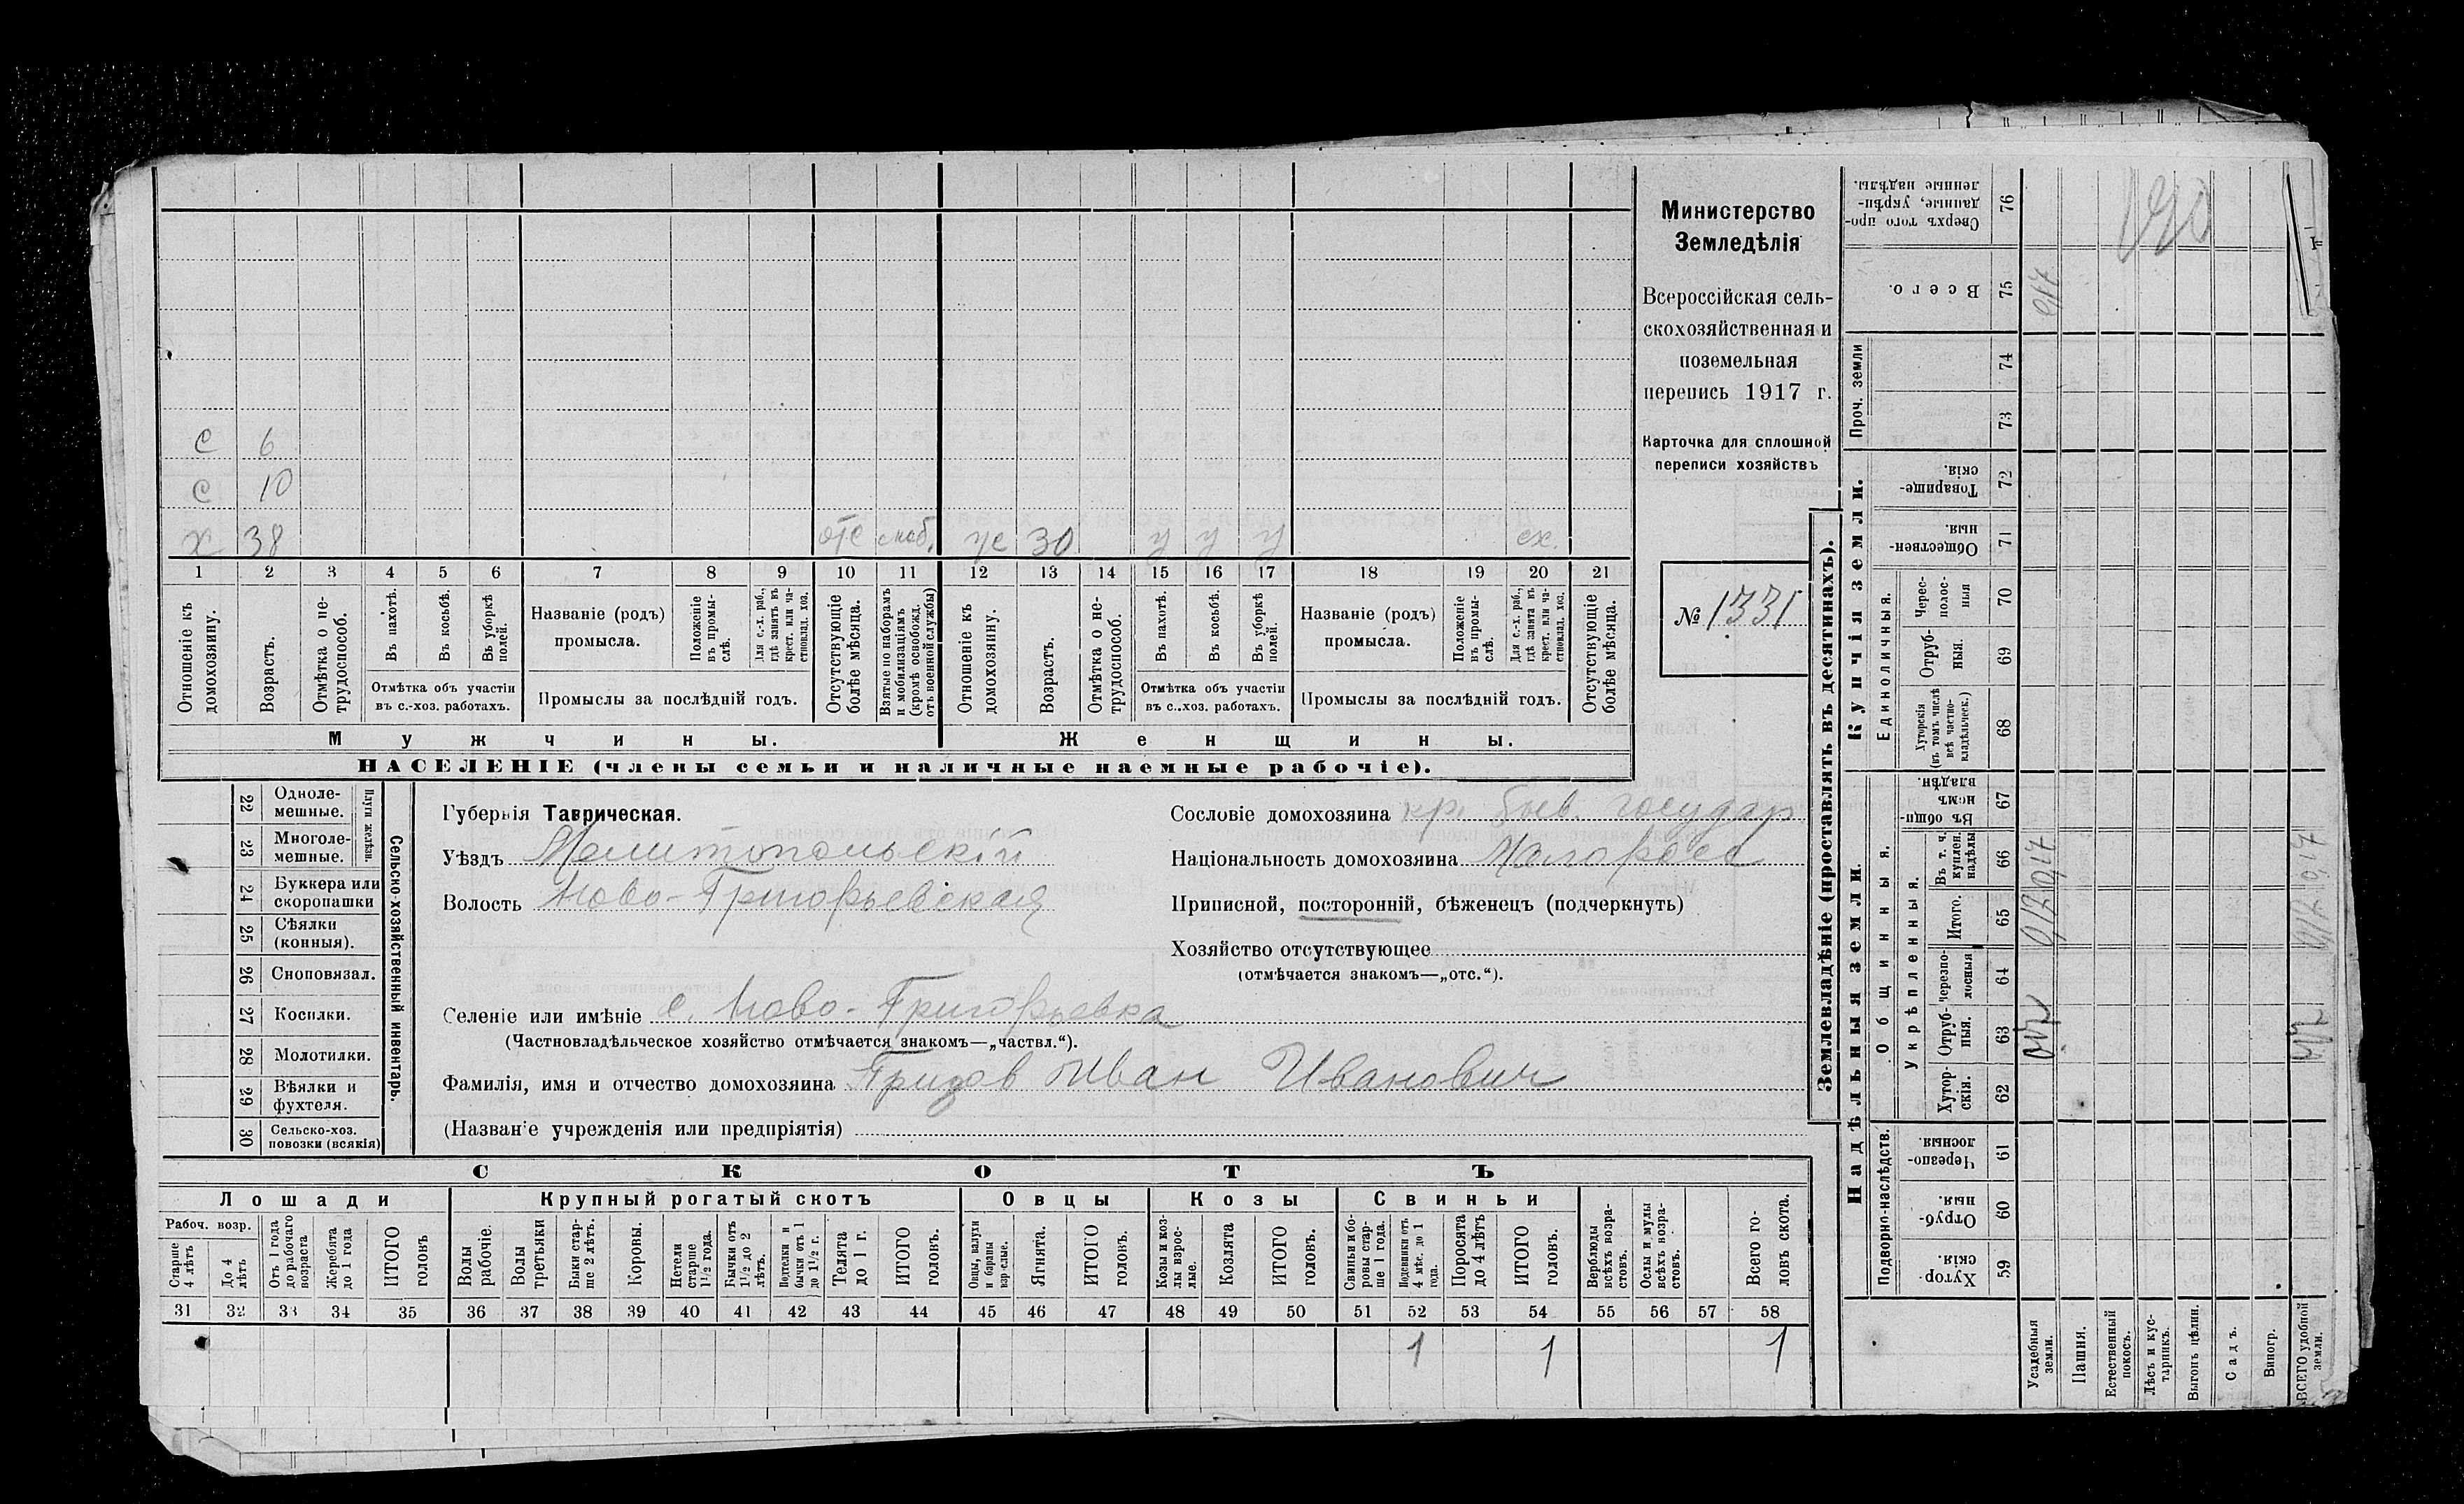 с 6
с 10
х 38 отс моб. ж 30 у у у сх.
1 2 3 4 5 6 7 8 9 10 11 12 13 14 15 16 17 18 19 20 21
Отношеніе къ домохозяину.
Возрастъ.
Отмѣтка о нетрудоспособ.
Въ пахотѣ.
Въ косьбѣ.
Въ уборкѣ полей.
Отмѣтка объ участіи
въ с.-хоз. работахъ.
Названіе (родъ)
промысла.
Положеніе въ промыслѣ.
Для с.-х. раб., гдѣ занятъ въ крест. или частновлад. хоз.
Промыслы за послѣдній годъ.
Отсутствующіе болѣе мѣсяца.
Взятые по наборамъ и мобилизаціямъ (кромѣ освобожд. отъ военной службы)
Отношеніе къ домохозяину.
Возрастъ.
Отмѣтка о нетрудоспособ.
Въ пахотѣ.
Въ косьбѣ.
Въ уборкѣ полей.
Отмѣтка объ участіи
въ с.-хоз. работахъ.
Названіе (родъ)
промысла.
Положеніе въ промыслѣ.
Для с.-х. раб., гдѣ занятъ въ крест. или частновлад. хоз.
Промыслы за послѣдній годъ.
Отсутствующіе болѣе мѣсяца.
Мужчины. Женщины.
НАСЕЛЕНІЕ (члены семьи и наличные наемные рабочіе).
Министерство
Земледѣлія
Всероссійская сель-
скохозяйственная и
поземельная
перепись 1917 г.
Карточка для сплошной
переписи хозяйствъ
№ 1331
Сельско-хозяйственный инвентарь.
Плуги желѣзн.
22 Одноле-
мешные.
23 Многоле-
мешные.
24 Буккера или
скоропашки
25 Сѣялки
(конныя).
26 Сноповязал.
27 Косилки.
28 Молотилки.
29 Вѣялки и
фухтеля.
30 Сельско-хоз.
повозки (всякія)
Губернія Таврическая.
Уѣздъ Мелитопольскій
Волость Ново-Григорьевская
Селеніе или имѣніе с. Ново-Григорьевка
(Частновладѣльческое хозяйство отмѣчается знакомъ—„частвл.“).
Фамилія, имя и отчество домохозяина Иван Иванович
(Названіе учрежденія или предпріятія)
Сословіе домохозяина кр. быв. государ
Національность домохозяина Малоросс
Приписной, посторонній, бѣженецъ (подчеркнуть)
Хозяйство отсутствующее
(отмѣчается знакомъ—„отс.“).
СКОТЪ
Лошади Крупный рогатый скотъ Овцы Козы Свиньи
Рабоч. возр.
Старше 4 лѣтъ
До 4 лѣтъ
Отъ 1 года до рабочаго возраста
Жеребята до 1 года
ИТОГО головъ
Волы рабочіе.
Волы третьяки
Быки старше 2 лѣтъ.
Коровы.
Нетели старше 1½ года.
Бычки отъ 1½ до 2 лѣтъ.
Подтелки и бычки отъ 1 до 1½ г.
Телята до 1 г.
ИТОГО головъ.
Овцы, валухи и бараны взрослые.
Ягнята.
ИТОГО головъ.
Козы и козлы взрослые.
Козлята
ИТОГО головъ.
Свиньи и боровы старше 1 года.
Подсвинки отъ 4 мѣс. до 1 года.
Поросята до 4 лѣтъ
ИТОГО головъ.
Верблюды всѣхъ возрастовъ.
Ослы и мулы всѣхъ возрастовъ.
Всего головъ скота.
31 32 33 34 35 36 37 38 39 40 41 42 43 44 45 46 47 48 49 50 51 52 53 54 55 56 57 58
1 1 1
Землевладѣніе (проставлять въ десятинахъ).
Надѣльныя земли. Купчія земли.
Подворно-наслѣдств.
Общинныя.
Укрѣпленныя.
Единоличныя.
Проч. земли
59 Хуторскія.
60 Отрубныя.
61 Черезполосныя.
62 Хуторскія.
63 Отрубныя.
64 Черезполосныя
65 Итого.
66 Въ т. ч. куплен. надѣлы
67 Въ общинномъ владѣн.
68 Хуторскія (въ томъ числѣ всѣ частновладѣльческ.)
69 Отрубныя.
70 Чересполосныя
71 Общественныя.
72 Товарищескія.
73
74
75 Всего.
76 Сверхъ того проданные, укрѣпленные надѣлы.
Усадебныя земли.
Пашня.
Естественный покосъ.
Лѣсъ и кустарникъ.
Выгонъ цѣлин.
Садъ.
Виногр.
ВСЕГО удобной земли.